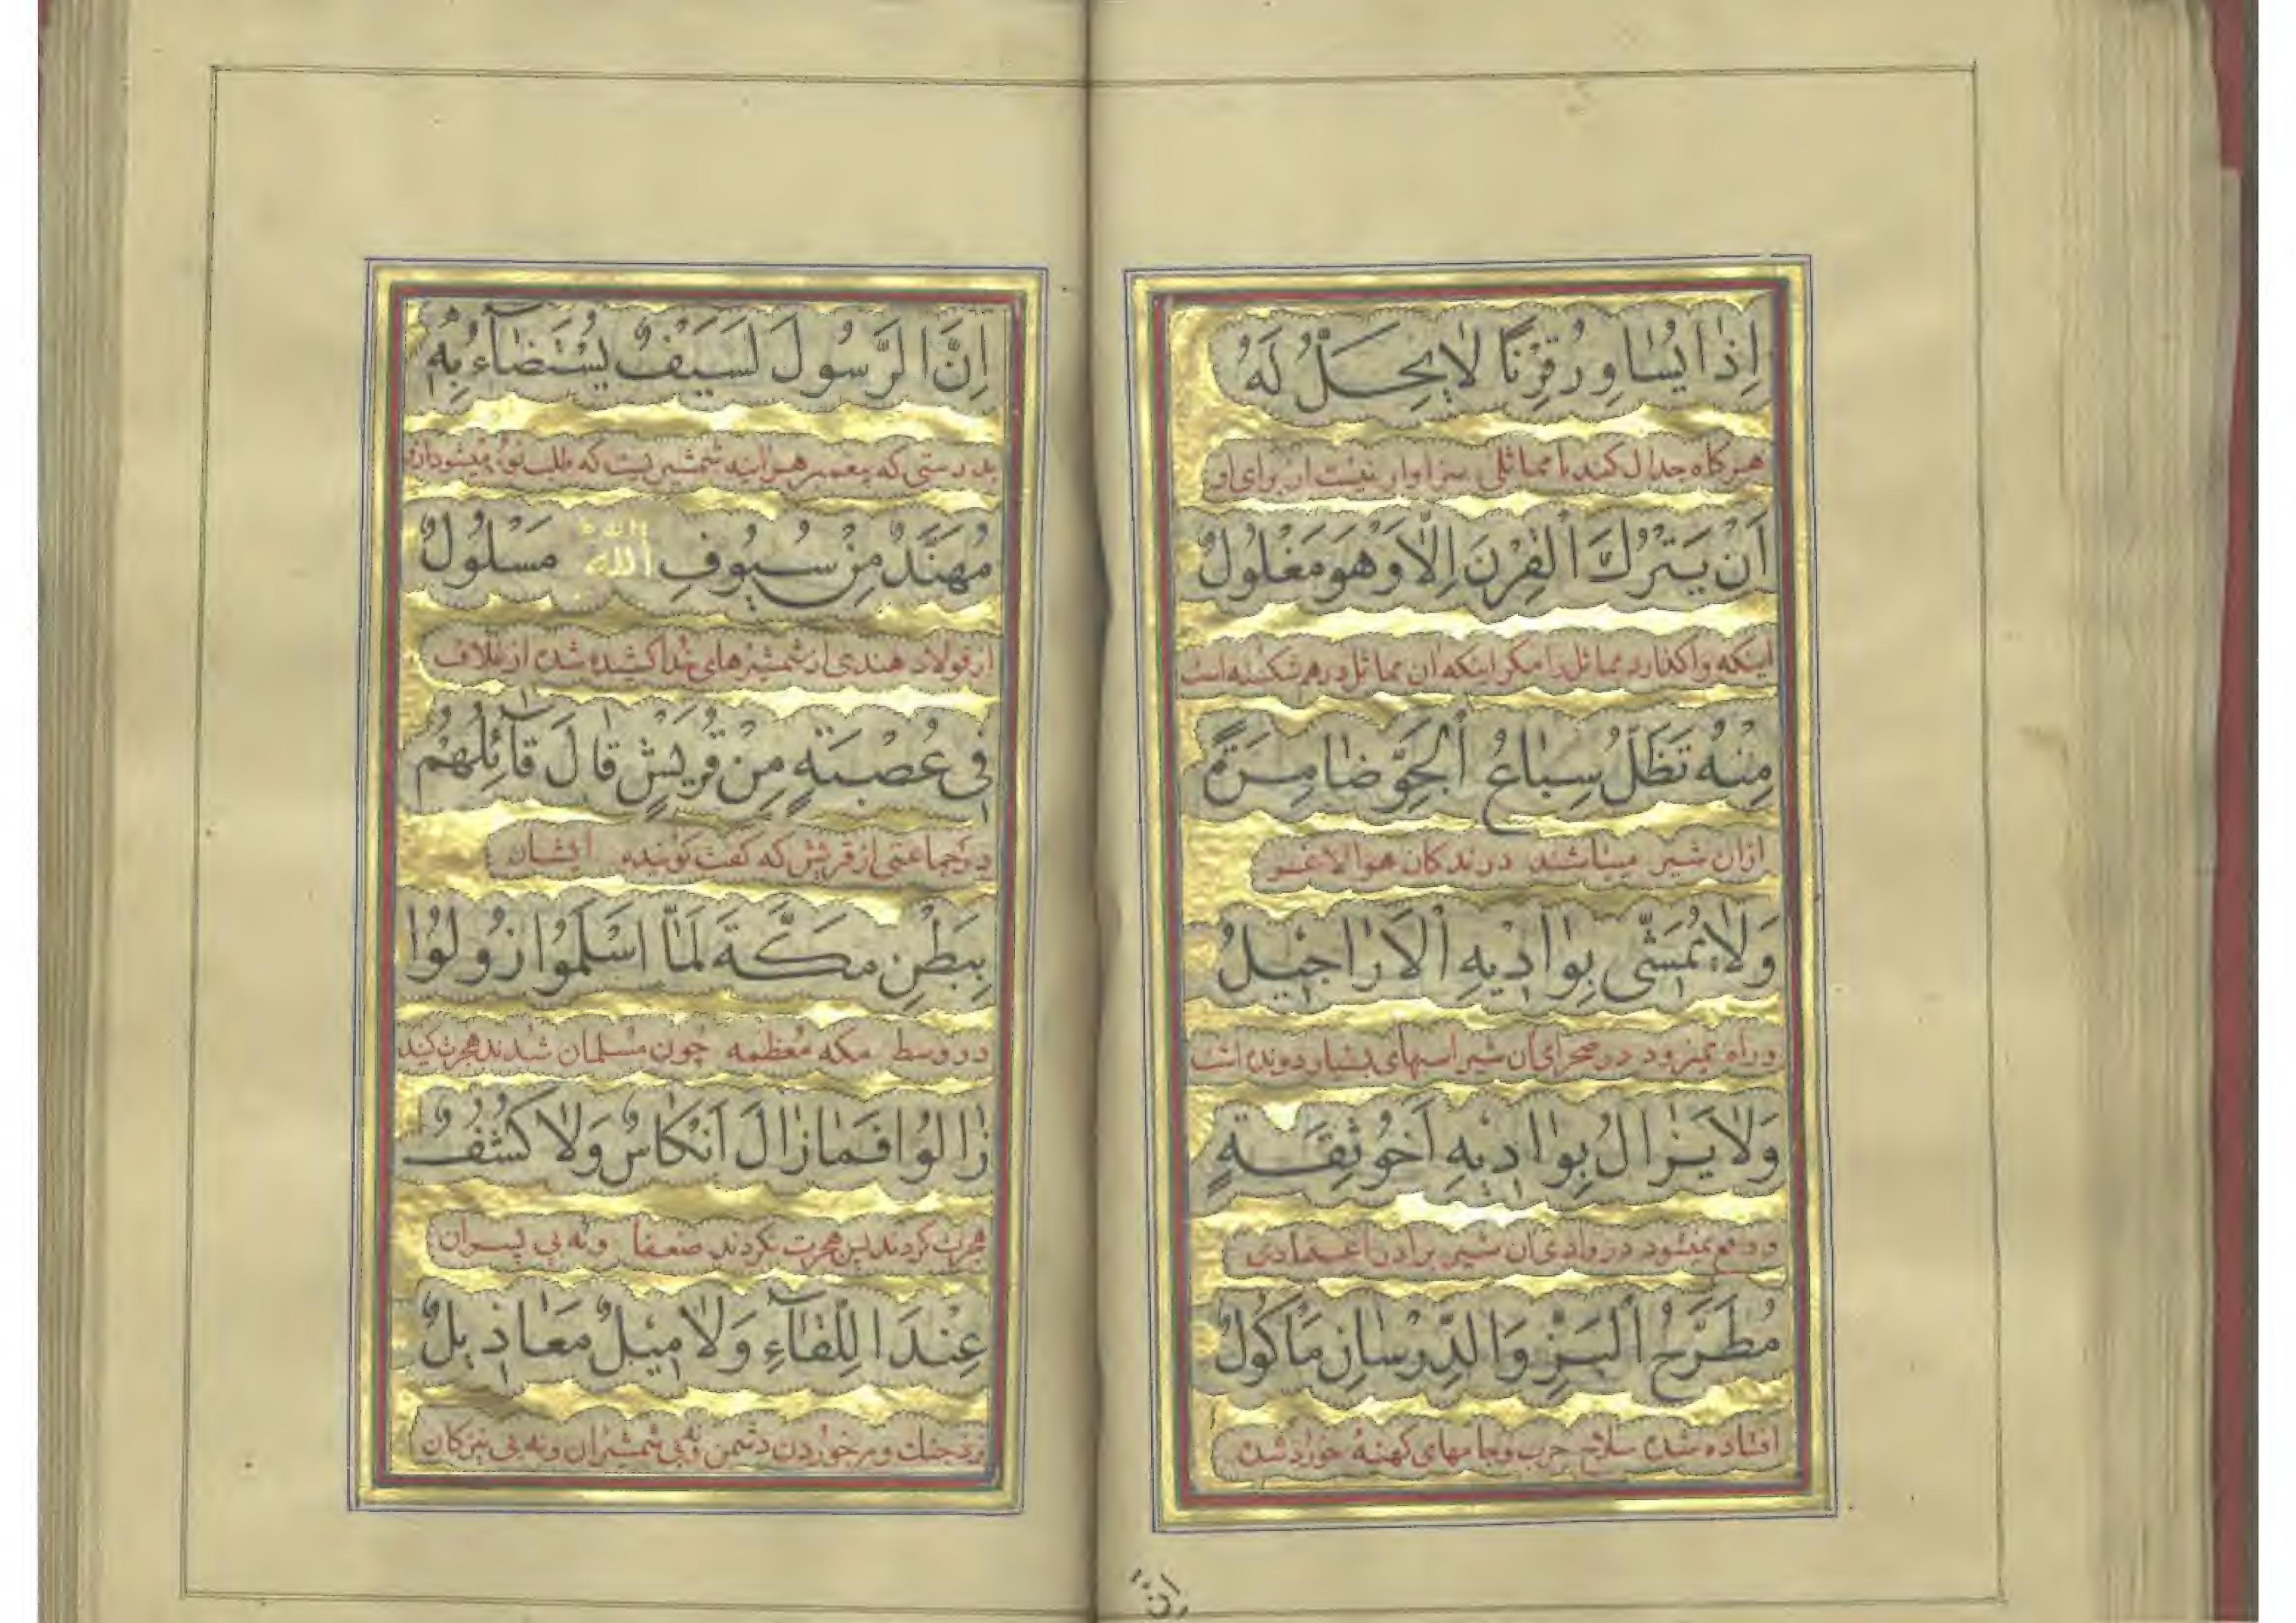 اِذٰا يُسٰاوِرُ قِرْنًا لٰا يَحِلُّ لَهُ
هرگاه جدال کند با مماثلی سزاوار نیست از برای او
اَنْ يَتْرُكَ الْقِرْنَ اِلّٰا وَهُوَ مَغْلُولٌ
اینکه واگذارد مماثل را مگر اینکه آن مماثل درهم شکسته است
مِنْهُ تَظَلُّ سِبٰاعُ الْجَوِّ ضٰامِرَةً
ازان شیر میباشند درندکان هوا لاغر
وَلٰا تُمَشّٰى بِوٰادِيهِ الْاَرٰاجِيلُ
وراه نمیرود در صحرای آن شیر اسبهای بسیار دونده است
وَلٰا يَزٰالُ بِوٰادِيهِ اَخُو ثِقَةٍ
نمیشود در وادی آن شیر برادر اعتمادی
مُطَرَّحُ الْبَزِّ وَالدِّرْسٰانِ مَأكُولٌ
افتاده شده سلاح حرب وجامهای کهنهٔ خورد شده
اِنَّ
اِنَّ الرَّسُولَ لَسَيْفٌ يُسْتَضٰآءُ بِهِ
بدرستی که پیغمبر هرآینه شمشیریست که طلب نور میشود ازو
مُهَنَّدٌ مِنْ سُيُوفِ اللّٰهِ مَسْلُولٌ
از فولاد هندی از شمشیرهای خدا کشیده شده از غلاف
فِى عُصْبَةٍ مِنْ قُرَيْشٍ قٰالَ قٰآئِلُهُمْ
در جماعتی از قریش که گفت گوینده ایشان
بِبَطْنِ مَكَّةَ لَمّٰا اَسْلَمُوا زُولُوا
در وسط مکه معظمه چون مسلمان شدند هجرت کنید
زٰالُوا فَمٰا زٰالَ اَنْكٰاسٌ وَلٰا كُشُفٌ
هجرت کردند پس هجرت نکردند ضعفا ونه بی سپران
عِنْدَ اللِّقٰآءِ وَلٰا مِيلٌ مَعٰازِيلٌ
نزد جنك وبرخوردن دشمن ونه بی شمشیران ونه بی نیزکان